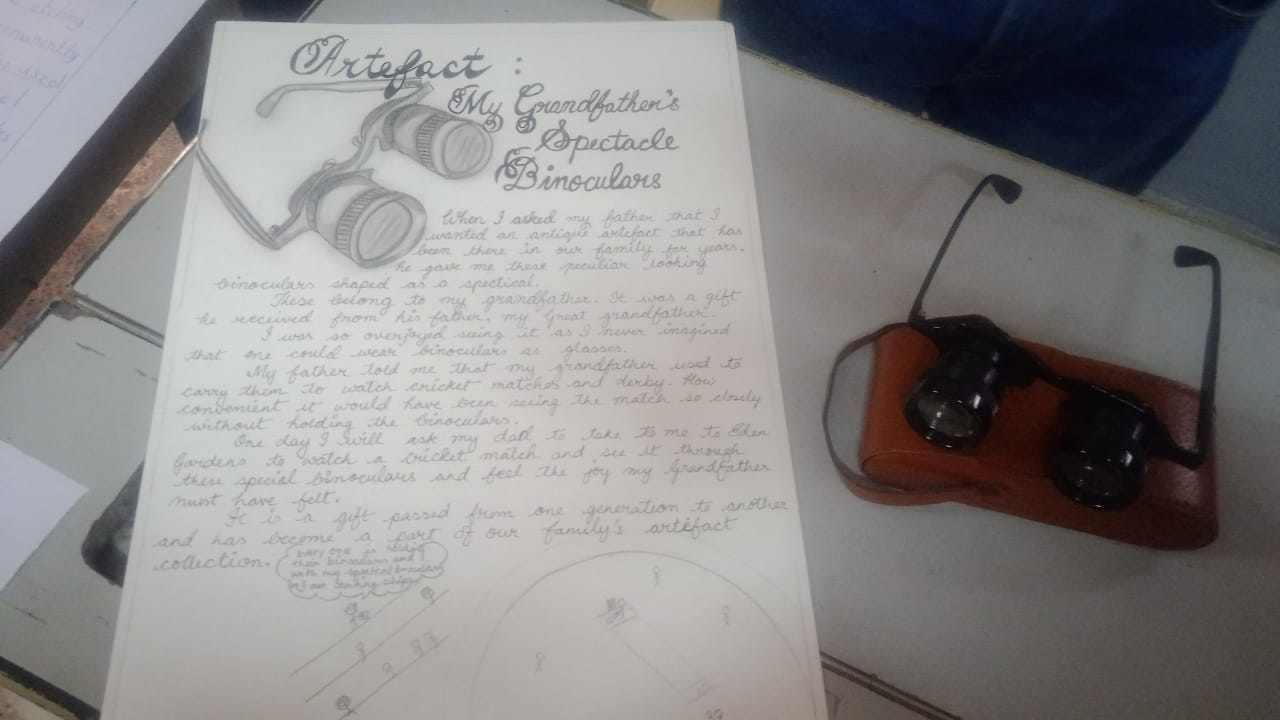 Artefact :
My Grandfather's
Spectacle
Binoculars
When I asked my father that I
wanted an antique artefact that has
been there in our family for years,
he gave me these peculiar looking
binoculars shaped as a spectical.
These belong to my grandfather. It was a gift
he received from his father, my great grandfather.
I was so overjoyed seeing it as I never imagined
that one could wear binoculars as glasses.
My father told me that my grandfather used to
carry them to watch cricket matches and derby. How
convenient it would have been seeing the match so closely
without holding the binoculars.
One day I will ask my dad to take to me to Eden
Gardens to watch a cricket match and see it through
these special binoculars and feel the joy my Grandfather
must have felt.
It is a gift passed from one generation to another
and has become a part of our family's artefact
collection.
every one is holding
their binoculars and
with my spectical binoculars
I am eating chips